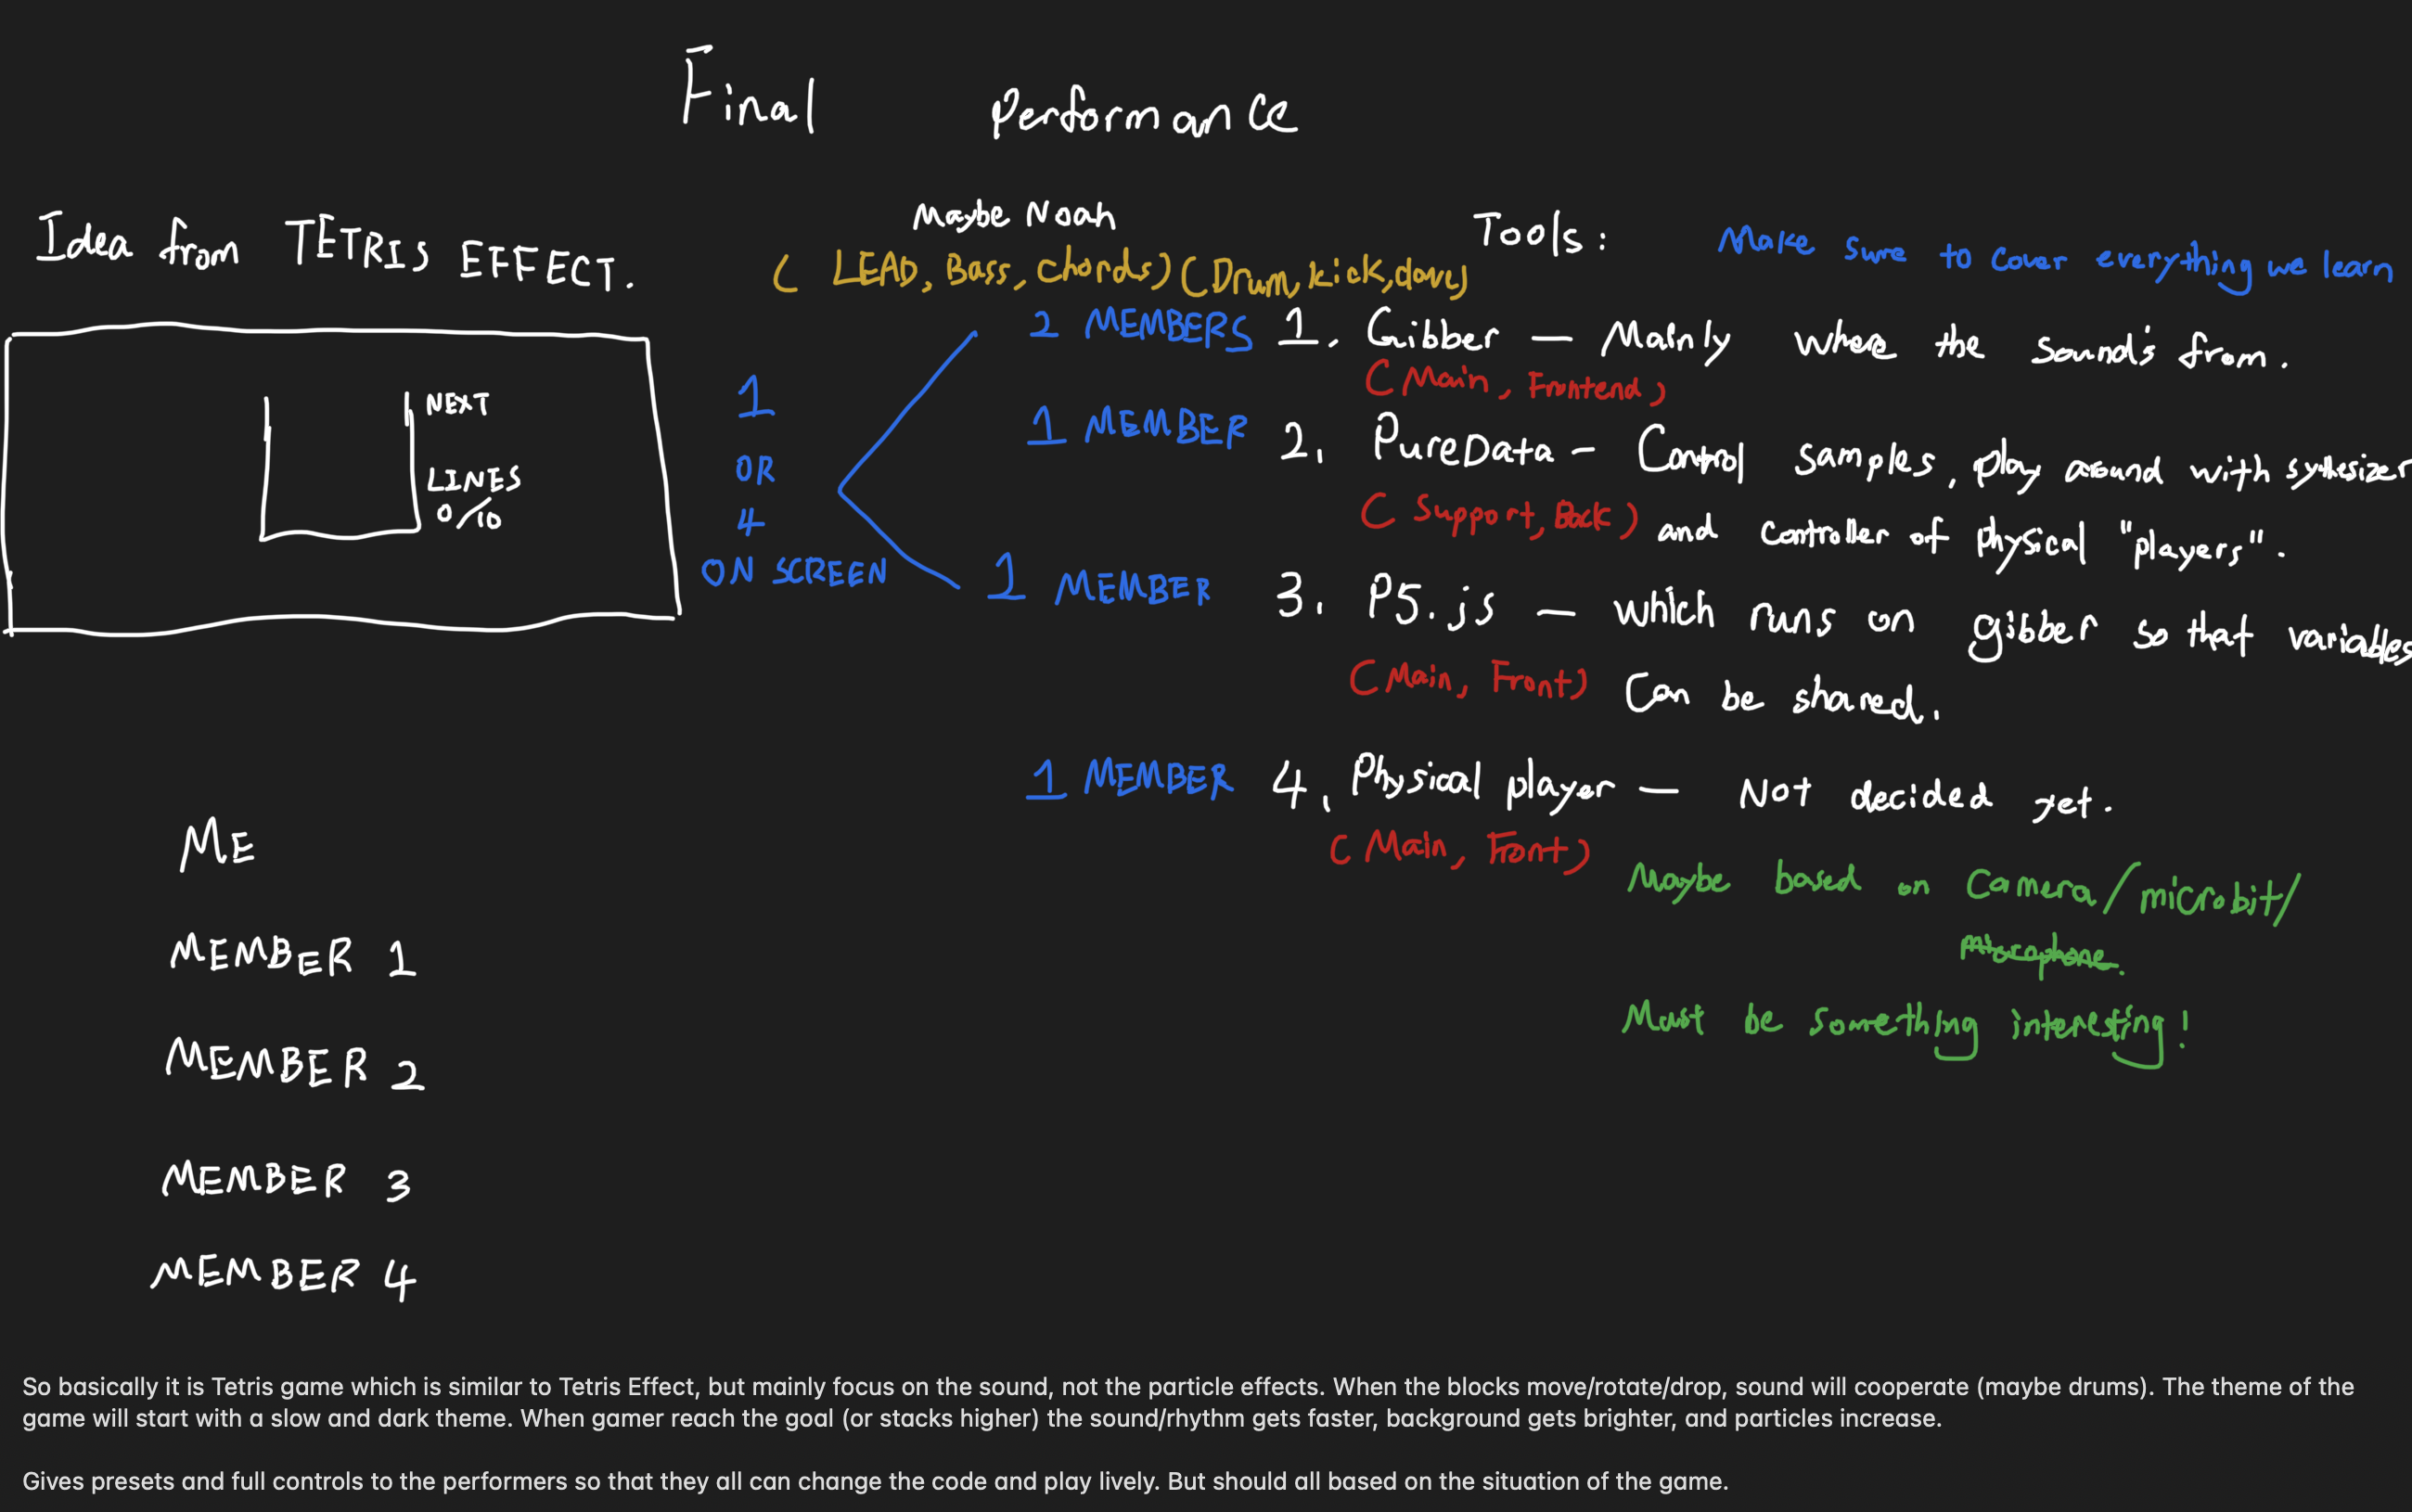 Final Performance
Idea from TETRIS EFFECT.
NEXT
LINES
0/10
1
OR
4
ON SCREEN
Maybe Noah
( LEAD, Bass, Chords) (Drum, kick,
Tools:
Make sure to cover everything we learn
2 MEMBERS 1. Gibber — Mainly where the sound's from.
(Main, Frontend)
1 MEMBER 2. PureData - Control samples, play around with sythesizer
(Support, Back) and controller of physical "players".
1 MEMBER 3. P5.js — which runs on gibber so that variables
(Main, Front) Can be shared.
1 MEMBER 4. Physical player — Not decided yet.
(Main, Front)
Maybe based on Camera/microbit/
microphone.
Must be something interesting!
ME
MEMBER 1
MEMBER 2
MEMBER 3
MEMBER 4
So basically it is Tetris game which is similar to Tetris Effect, but mainly focus on the sound, not the particle effects. When the blocks move/rotate/drop, sound will cooperate (maybe drums). The theme of the
game will start with a slow and dark theme. When gamer reach the goal (or stacks higher) the sound/rhythm gets faster, background gets brighter, and particles increase.
Gives presets and full controls to the performers so that they all can change the code and play lively. But should all based on the situation of the game.